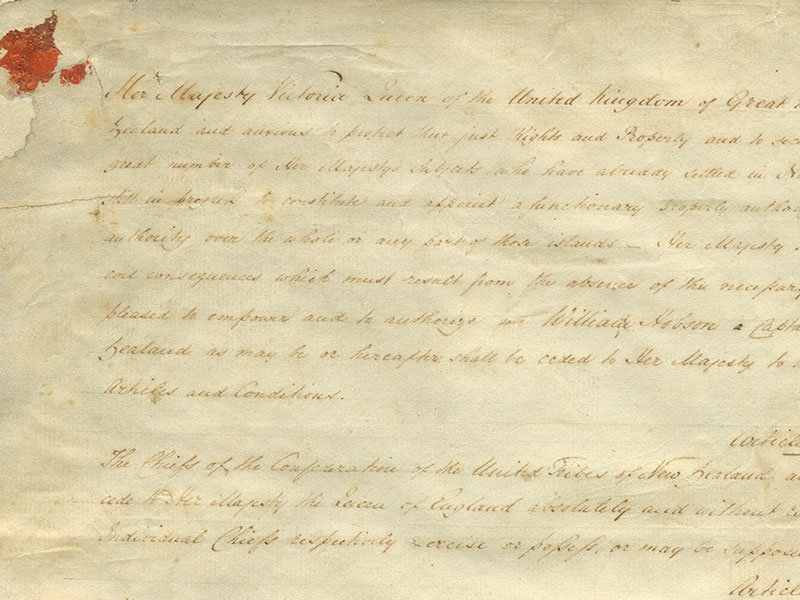 Her Majesty Victoria Queen of the United Kingdom of Great
Zealand and anxious to protect their just Rights and Property and to sec
great number of Her Majesty's Subjects who have already settled in Ne
still in progress to constitute and appoint a functionary properly autho
authority over the whole or any part of those islands – Her Majesty
evil consequences which must result from the absence of the necessary
pleased to empower and to authorize me William Hobson a Capta
Zealand as may be or hereafter shall be ceded to Her Majesty to
Articles and Conditions.
Article
The Chiefs of the Confederation of the United Tribes of New Zealand a
cede to Her Majesty the Queen of England absolutely and without
Individual Chiefs respectively exercise or possess, or may be suppose
Articl